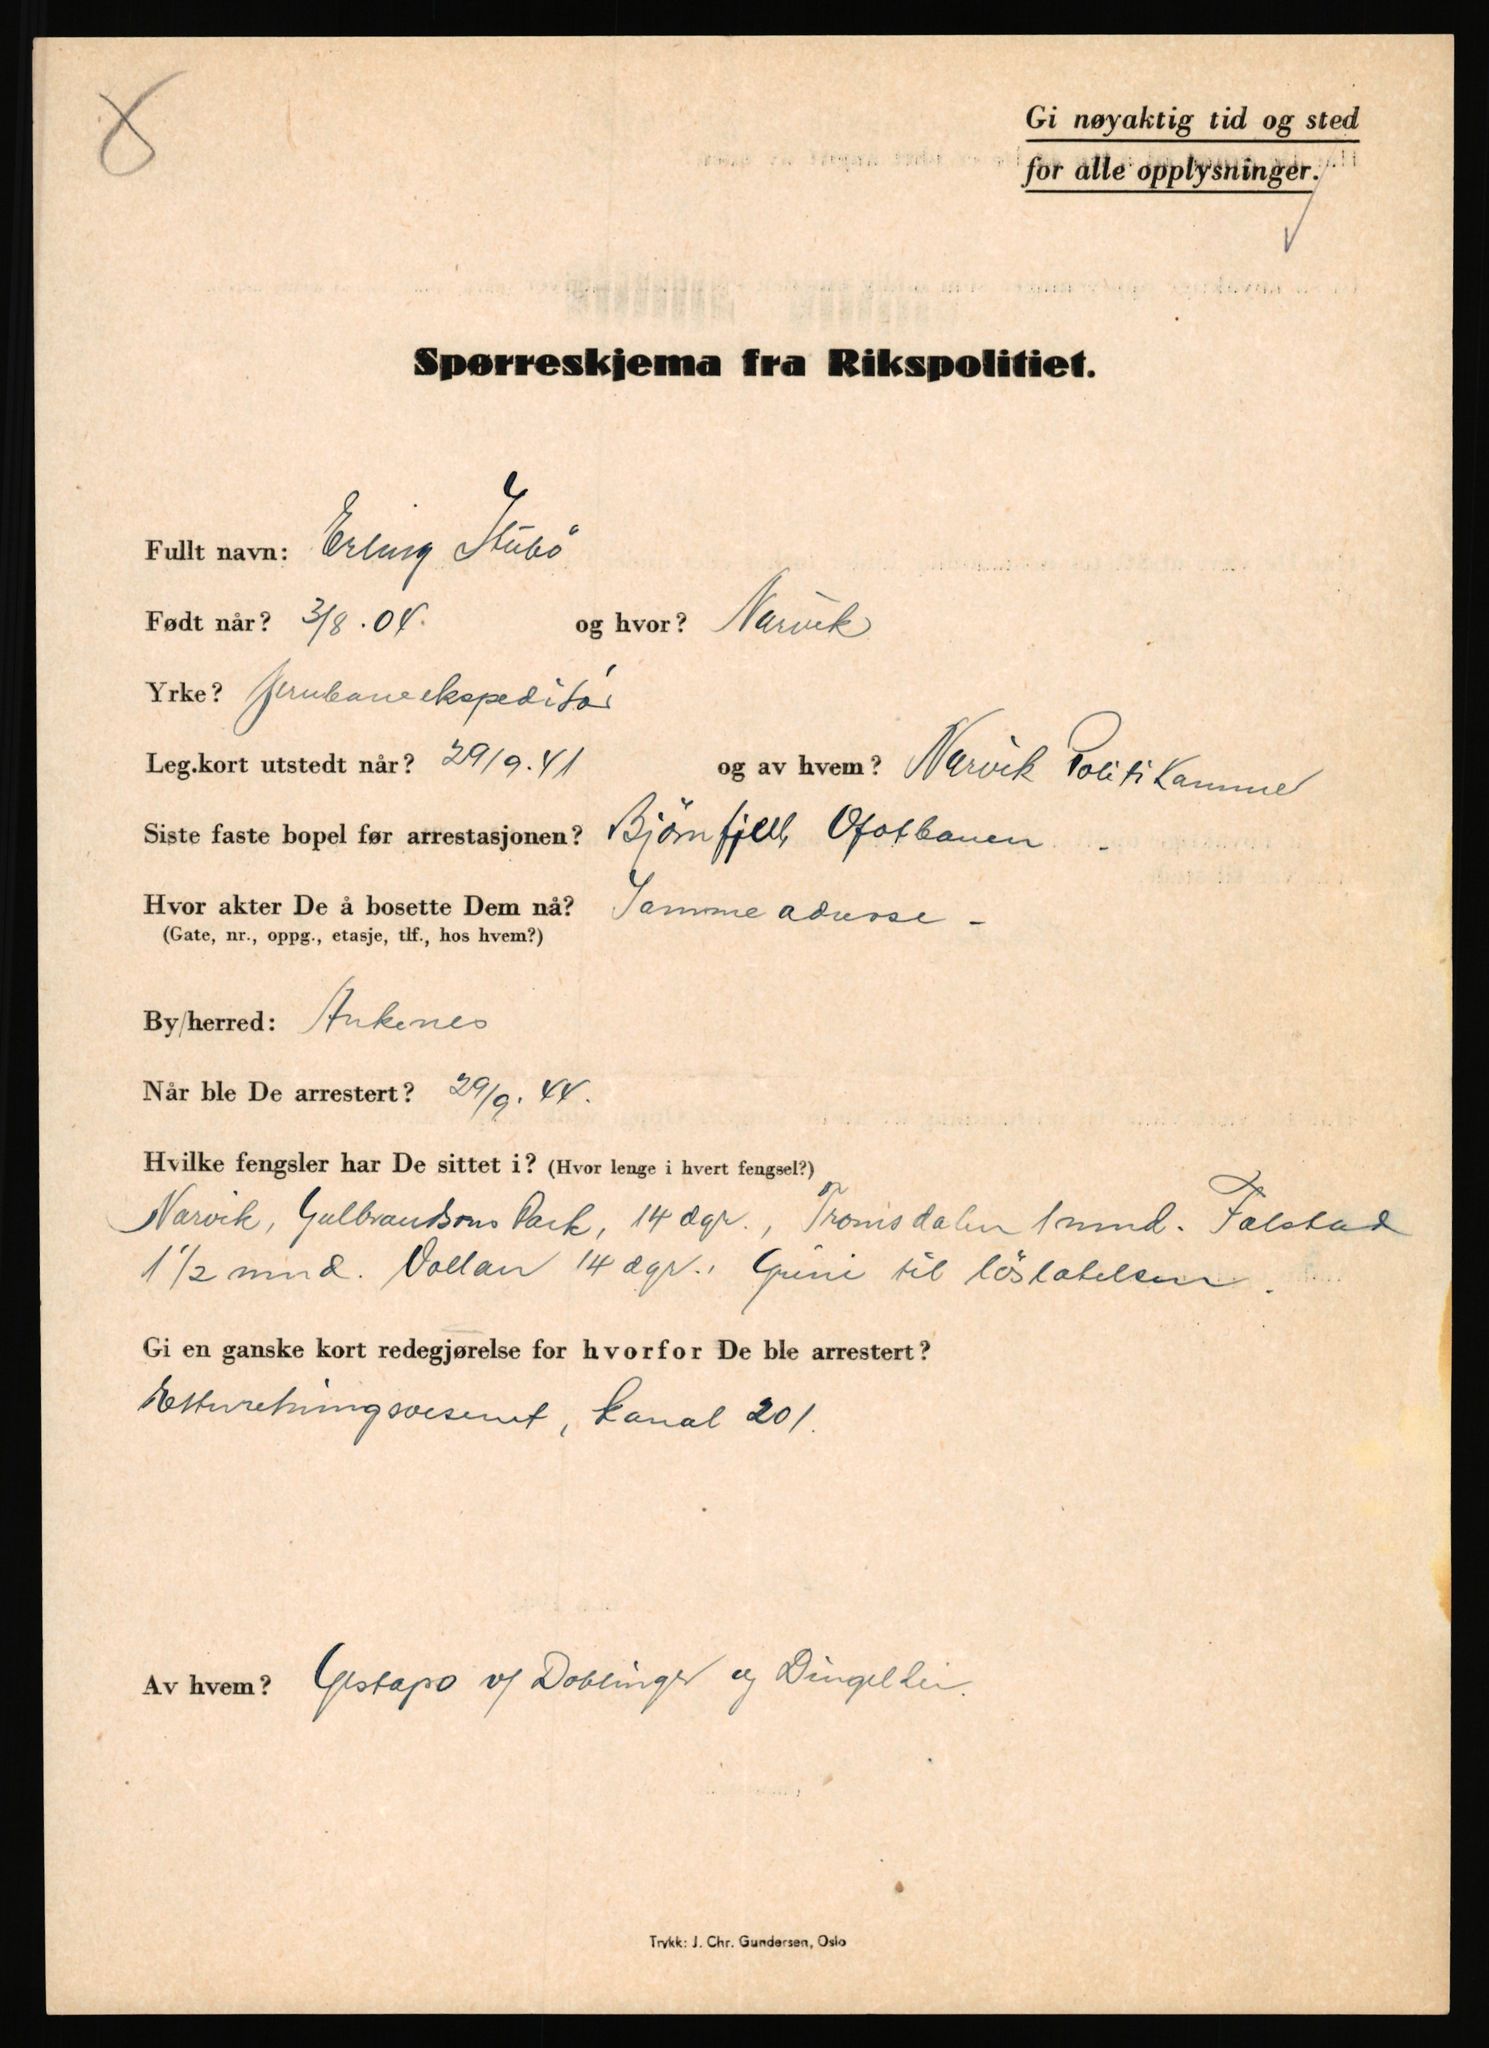 8
Gi nøyaktig tid og sted
for alle opplysninger.
Spørreskjema fra Rikspolitiet.
Fullt navn: Erling Stubö
Født når? 3/8.04. og hvor? Narvik
Yrke? Jernbaneekspeditør
Leg.kort utstedt når? 29/9.41 og av hvem? Narvik Politikammer
Siste faste bopel før arrestasjonen? Björnfjell, Ofotbanen.
Hvor akter De å bosette Dem nå? Samme adresse -
(Gate, nr., oppg., etasje, tlf., hos hvem?)
By/herred: Ankenes
Når ble De arrestert? 29/9.44.
Hvilke fengsler har De sittet i? (Hvor lenge i hvert fengsel?)
Narvik, Gulbrandsons Park, 14 dgr., Tromsdalen 1 mnd. Falstad
1 1/2 mnd. Vollan 14 dgr., Grini til löslatelsen.
Gi en ganske kort redegjørelse for hvorfor De ble arrestert?
Etterretningsvesenet, kanal 201.
Av hvem? Gestapo v/ Doblinger og
Trykk: J. Chr. Gundersen, Oslo